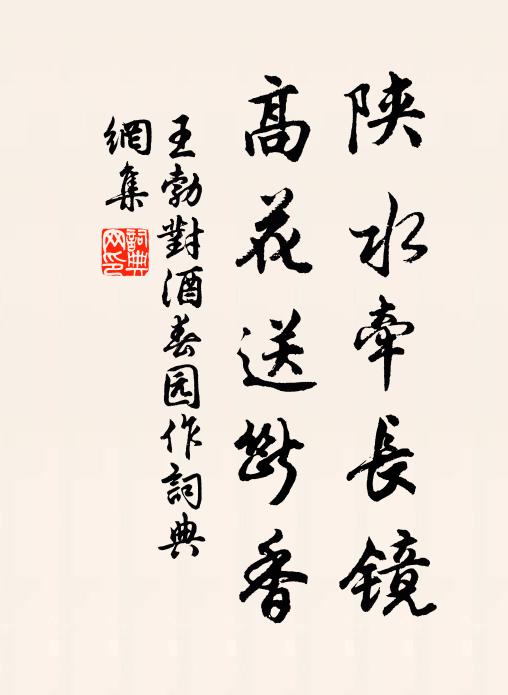 陝水牽長镜
高花送斷香
王勃對酒春园作詞典
網集
詞典网印